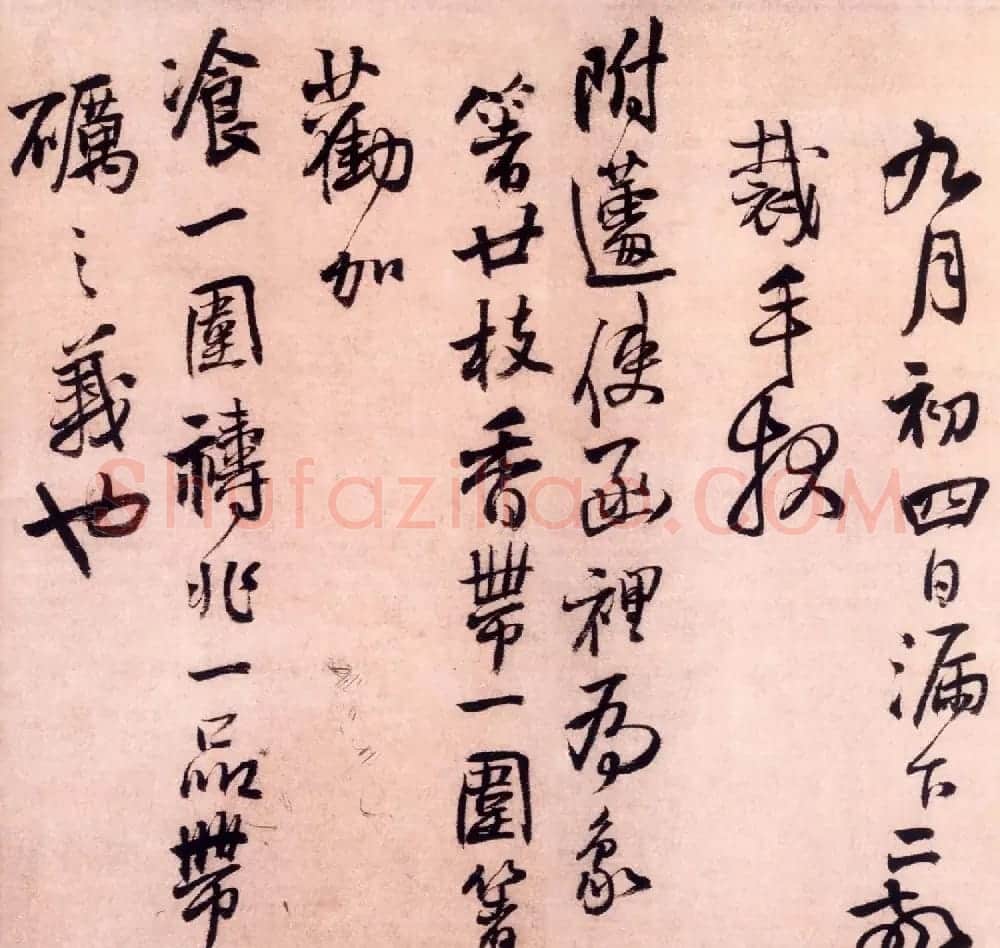 九月初四日漏下二
裁手
附蘧使函裡為象
箸廿枝香帶一圍箸
勸加
飡一圍禱兆一品帶
礪之義也